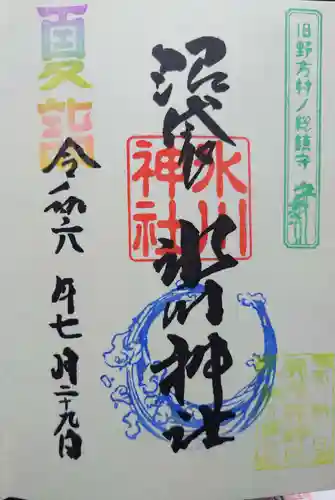 旧野方村ノ総鎮守
沼袋 氷川神社
氷川
神社
夏詣
令和六年七月二十九日